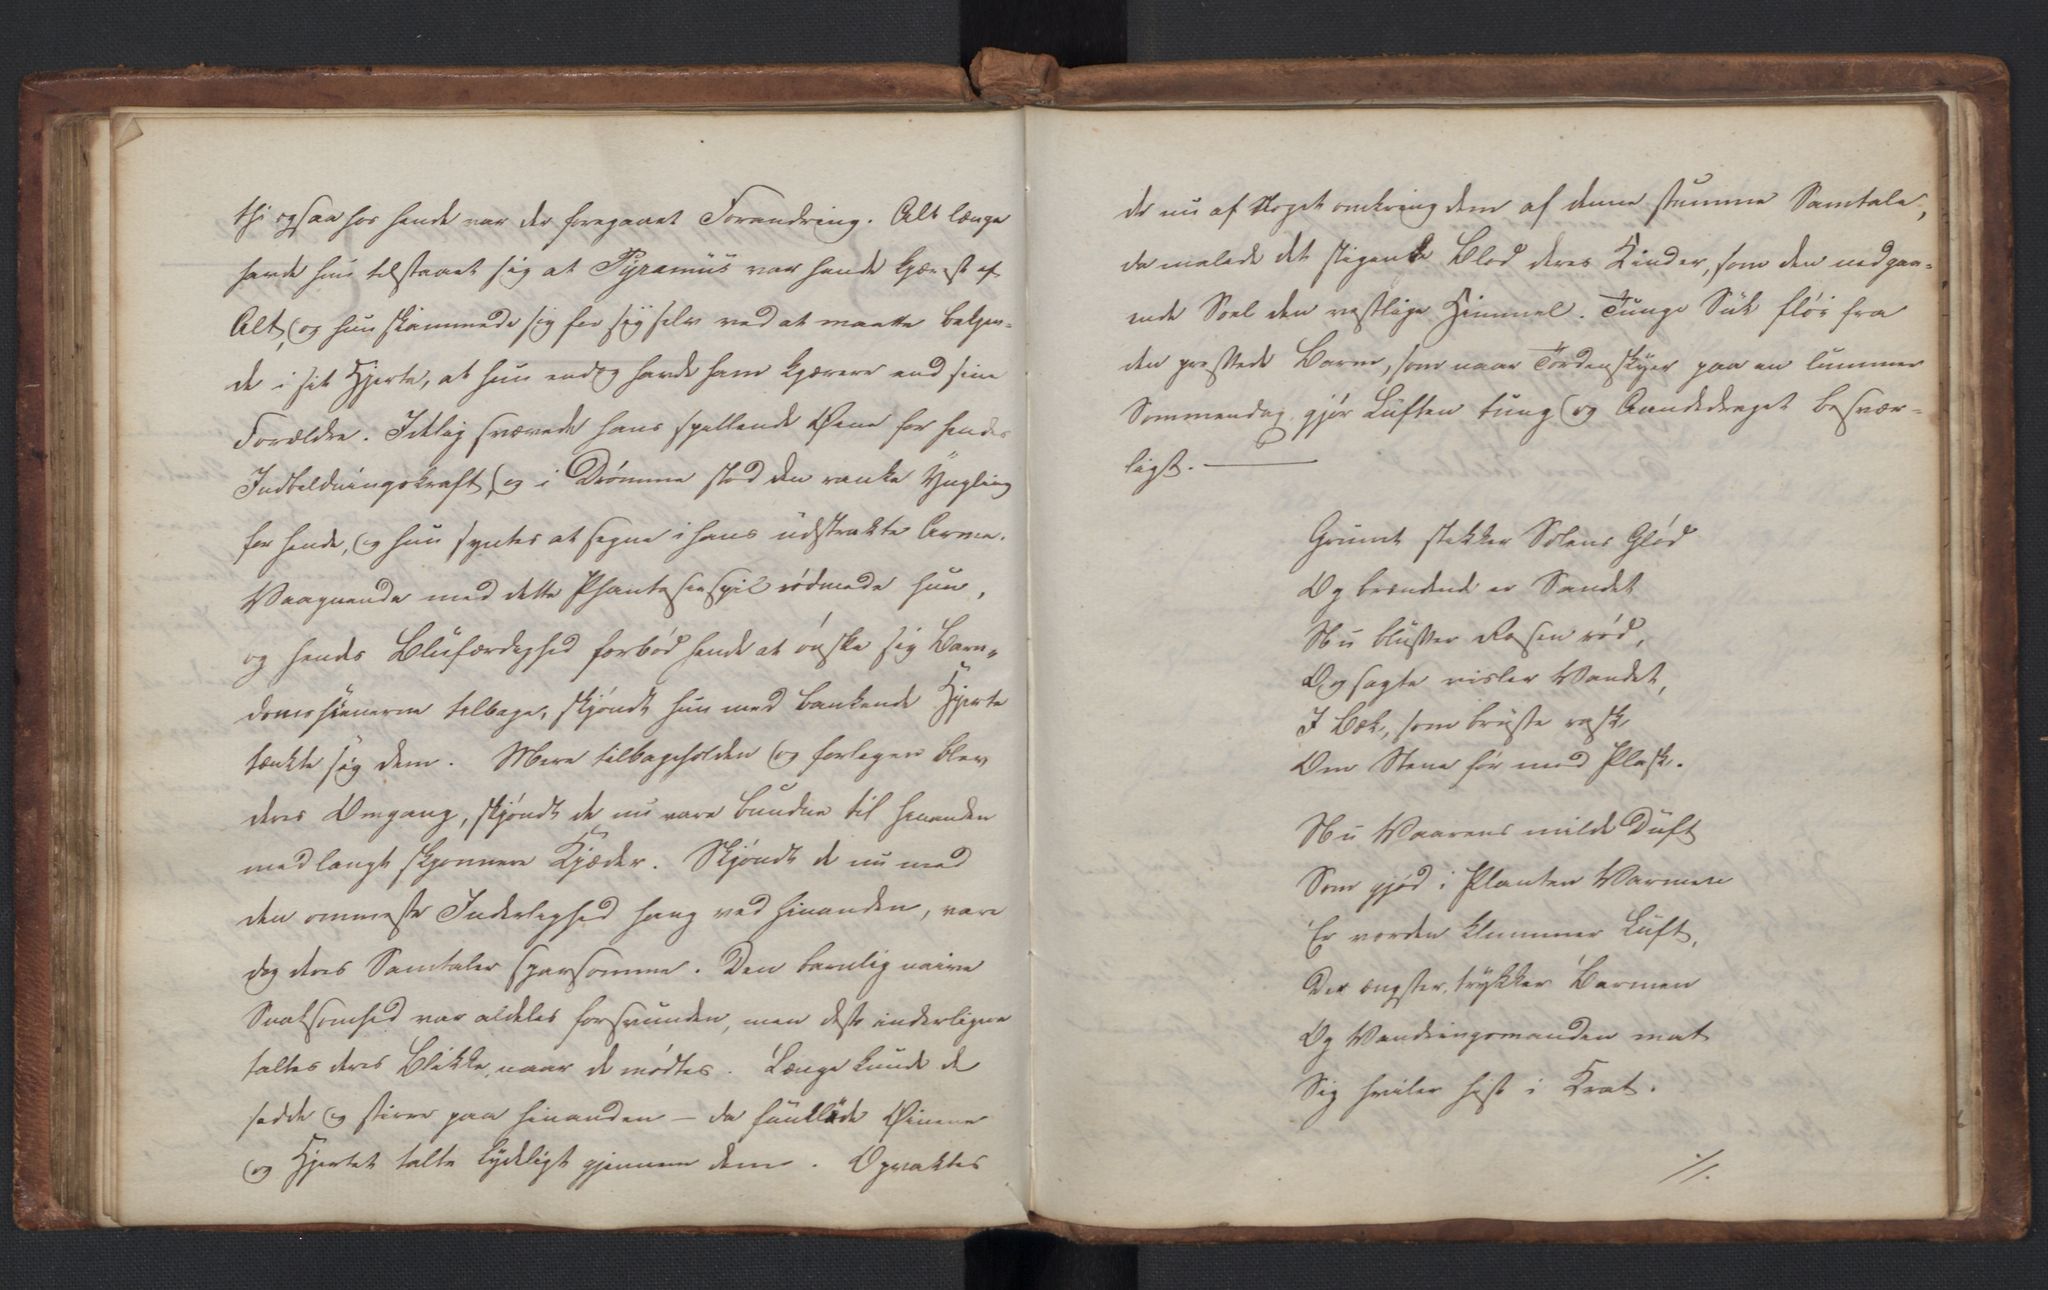 thi ogsaa hos hende var der foregaaet Forandring. Alt længe
havde hun tilstaaet sig at Pyramus var hende kjærest af
Alt, og hun skammede sig for sig selv ved at maatte bekjen-
de i sit Hjerte, at hun endog havde ham kjærere end sine
Forældre. Idelig svævede hans spillende Øine for hendes
Indbildningskraft, og i Drømme stod den ranke Yngling
for hende, og hun syntes at segne i hans udstrakte Arme.
Vaagnende med dette Phantasiespil rødmede hun,
og hendes Blufærdighed forbød hende at ønske sig Barn-
domsscenerne tilbage, skjøndt hun med bankende Hjerte
tænkte sig dem. Mere tilbageholden og forlegen blev
deres Omgang, skjøndt de nu vare bundne til hinanden
med langt skjonnere Kjæder. Skjøndt de nu med
den ømmeste Inderlighed hang ved hinanden, vare
dog deres Samtaler sparsomme. Den barnlig naive
Snaksomhed var aldeles forsvunden, men desto inderligere
taltes deres Blikke, naar de mødtes. Længe kunde de
sidde og stirre paa hinanden – da funklede Øinene
og Hjertet talte lydeligt gjennem dem. Opvaktes
de nu af Noget omkring dem af denne stumme Samtale,
da malede det stigende Blod deres Kinder, som den nedgaa-
ende Soel den vestlige Himmel. Tunge Suk fløi fra
den pressede Barm, som naar Tordenskyer paa en lummer
Sommerdag gjør Luften tung og Aandedraget besvær-
ligt. —
Grumt stekker Solens Glød
Og brændende er Sandet
Nu blusser Rosen rød,
Og sagte risler Vandet,
I Bæk, som bruste rask
Om Stene før med Plask.
Nu Vaarens milde Duft
Som gjød i Planten Varmen
Er vorden klummer Luft,
Der ængster, trykker Barmen
Og Vandringsmanden mat
Sig hviler hist i Krat.
./.